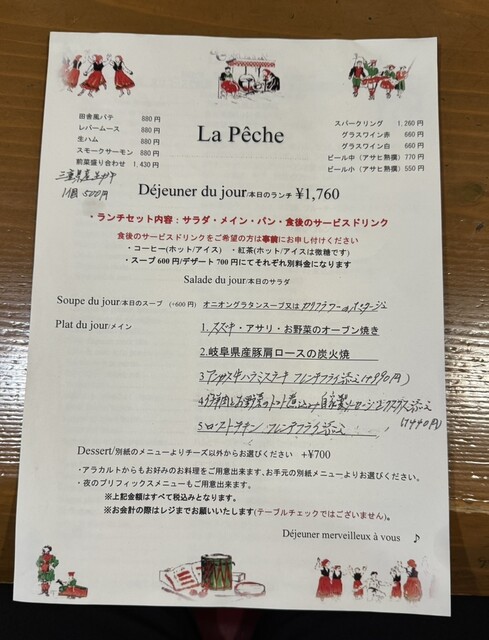 田舎風パテ 880 円
レバームース 880 円
生ハム 880 円
スモークサーモン 880 円
前菜盛り合わせ 1,430 円
三重県産生ガキ
1個 500円
La Pêche
スパークリング 1,260 円
グラスワイン赤 660 円
グラスワイン白 660 円
ビール中（アサヒ熟撰）770 円
ビール小（アサヒ熟撰）550 円
Déjeuner du jour/本日のランチ ¥1,760
・ランチセット内容：サラダ・メイン・パン・食後のサービスドリンク
食後のサービスドリンクをご希望の方は事前にお申し付けください
・コーヒー(ホット/アイス) ・紅茶(ホット/アイスは微糖です)
・スープ 600 円/デザート 700 円にてそれぞれ別料金になります
Salade du jour/本日のサラダ
Soupe du jour/本日のスープ (+600 円) オニオングラタンスープ又はカリフラワーのポタージュ
Plat du jour/メイン
1.スズキ・アサリ・お野菜のオーブン焼き
2.岐阜県産豚肩ロースの炭火焼
3.アンガス牛ハラミステーキ フレンチフライ添え(+990円)
4.仔羊肉とお野菜のトマト煮込み 自家製ソーセージ クスクス添え
(+440円)
5.ローストチキン フレンチフライ添え
Dessert/別紙のメニューよりチーズ以外からお選びください +¥700
・アラカルトからもお好みのお料理をご用意出来ます、お手元の別紙メニューよりお選びください。
・夜のプリフィックスメニューもご用意出来ます。
※上記金額はすべて税込みとなります。
※お会計の際はレジまでお願いいたします(テーブルチェックではございません)。
Déjeuner merveilleux à vous ♪